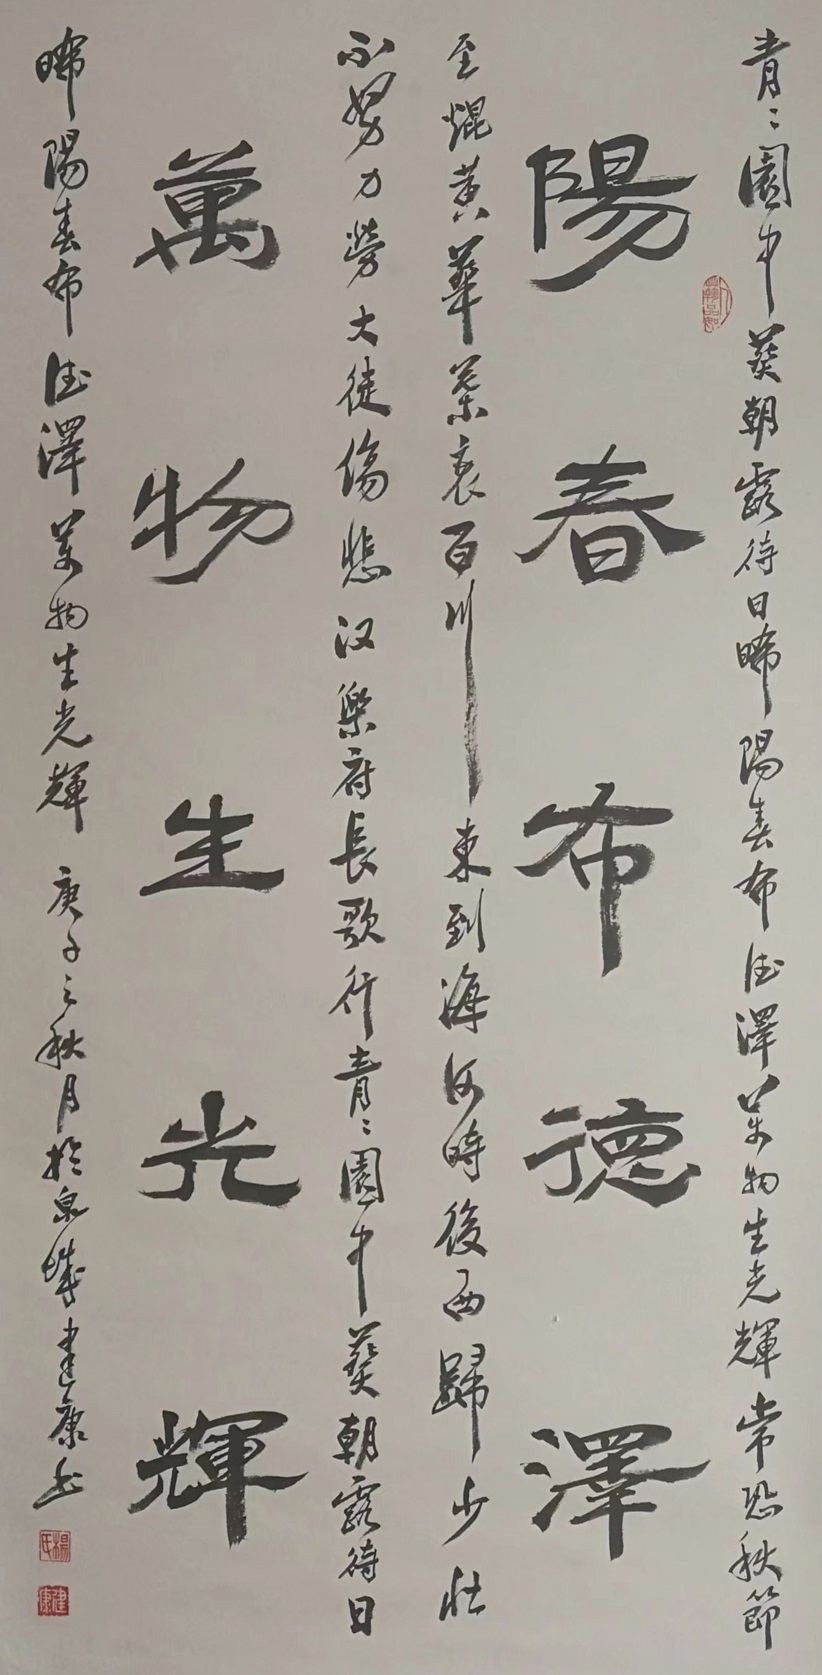 青〻園中葵朝露待日晞陽春布德澤萬物生光輝常恐秋節
陽春布德澤
至焜黄華葉衰百川東到海何時後西歸少壯
不努力勞大徒傷悲汉樂府長歌行青〻園中葵朝露待日
萬物生光輝
晞陽春布德澤萬物生光輝庚子之秋月於泉城建康书
楊氏
建康